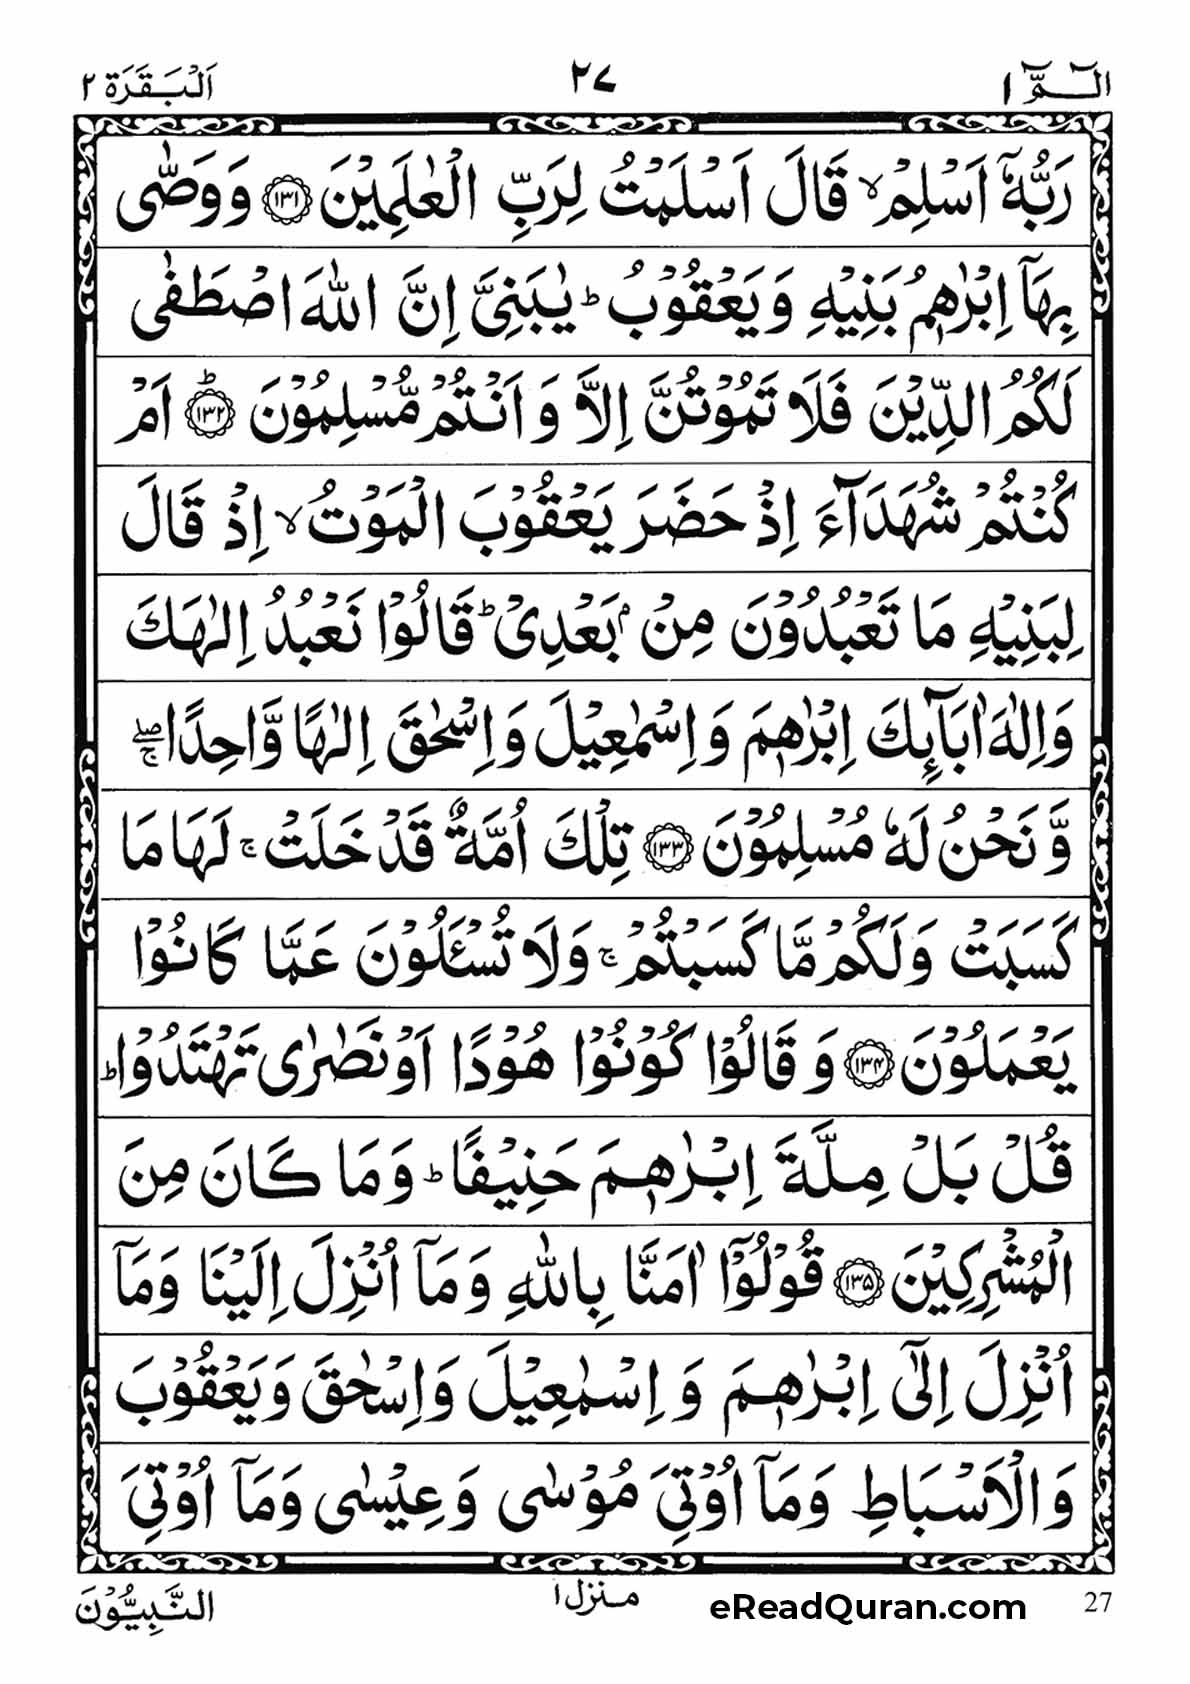 الٓمّٓ ١
٢٧
اَلْبَقَرَة ٢
رَبُّهٗۤ اَسْلِمْ ۙ قَالَ اَسْلَمْتُ لِرَبِّ الْعٰلَمِيْنَ ﴿۱۳۱﴾ وَوَصّٰى
بِهَاۤ اِبْرٰهٖمُ بَنِيْهِ وَ يَعْقُوْبُ ؕ يٰبَنِىَّ اِنَّ اللّٰهَ اصْطَفٰى
لَكُمُ الدِّيْنَ فَلَا تَمُوْتُنَّ اِلَّا وَ اَنْتُمْ مُّسْلِمُوْنَ ؕ﴿۱۳۲﴾ اَمْ
كُنْتُمْ شُهَدَآءَ اِذْ حَضَرَ يَعْقُوْبَ الْمَوْتُ ۙ اِذْ قَالَ
لِبَنِيْهِ مَا تَعْبُدُوْنَ مِنْۢ بَعْدِىْ ؕ قَالُوْا نَعْبُدُ اِلٰهَكَ
وَاِلٰهَ اٰبَآئِكَ اِبْرٰهٖمَ وَ اِسْمٰعِيْلَ وَ اِسْحٰقَ اِلٰهًا وَّاحِدًا ۖۚ
وَّ نَحْنُ لَهٗ مُسْلِمُوْنَ ﴿۱۳۳﴾ تِلْكَ اُمَّةٌ قَدْ خَلَتْ ۚ لَهَا مَا
كَسَبَتْ وَ لَكُمْ مَّا كَسَبْتُمْ ۚ وَلَا تُسْـَٔلُوْنَ عَمَّا كَانُوْا
يَعْمَلُوْنَ ﴿۱۳۴﴾ وَ قَالُوْا كُوْنُوْا هُوْدًا اَوْ نَصٰرٰى تَهْتَدُوْا ؕ
قُلْ بَلْ مِلَّةَ اِبْرٰهٖمَ حَنِيْفًا ؕ وَمَا كَانَ مِنَ
الْمُشْرِكِيْنَ ﴿۱۳۵﴾ قُوْلُوْۤا اٰمَنَّا بِاللّٰهِ وَ مَاۤ اُنْزِلَ اِلَيْنَا وَمَاۤ
اُنْزِلَ اِلٰٓى اِبْرٰهٖمَ وَ اِسْمٰعِيْلَ وَ اِسْحٰقَ وَيَعْقُوْبَ
وَالْاَسْبَاطِ وَمَاۤ اُوْتِىَ مُوْسٰى وَ عِيْسٰى وَمَاۤ اُوْتِىَ
النَّبِيُّوْنَ
منزل ١
eReadQuran.com
27